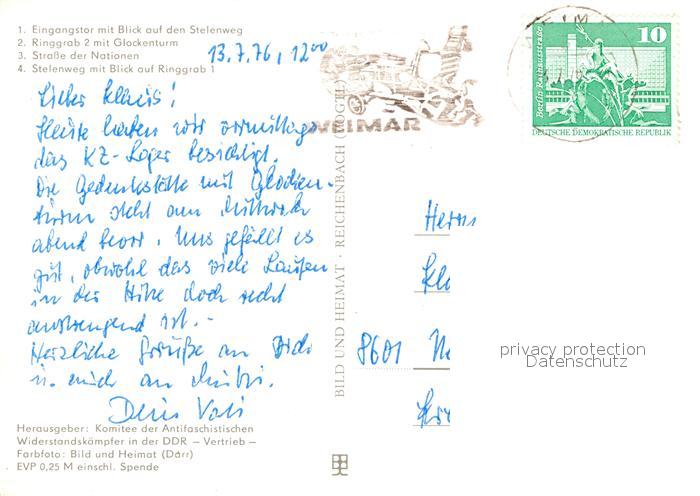 1. Eingangstor mit Blick auf den Stelenweg
2. Ringgrab 2 mit Glockenturm
3. Straße der Nationen
4. Stelenweg mit Blick auf Ringgrab 1
13.7.76, 12⁰⁰
Lieber Klaus!
Heute haben wir vormittags
das KZ-Lager besichtigt.
Die Gedenkstätte mit Glocken-
turm steht am Mittwoch
abend bevor. Uns gefällt es
gut, obwohl das viele Laufen
in der Hitze doch recht
anstrengend ist.-
Herzliche Grüße an Dich
u. auch an Mutti.
Dein Vati
Herausgeber: Komitee der Antifaschistischen
Widerstandskämpfer in der DDR – Vertrieb –
Farbfoto: Bild und Heimat (Dörr)
EVP 0,25 M einschl. Spende
BILD UND HEIMAT · REICHENBACH (VOGTL)
WEIMAR
Berlin Rathausstraße
10
DEUTSCHE DEMOKRATISCHE REPUBLIK
Herrn
8601
privacy protection
Datenschutz